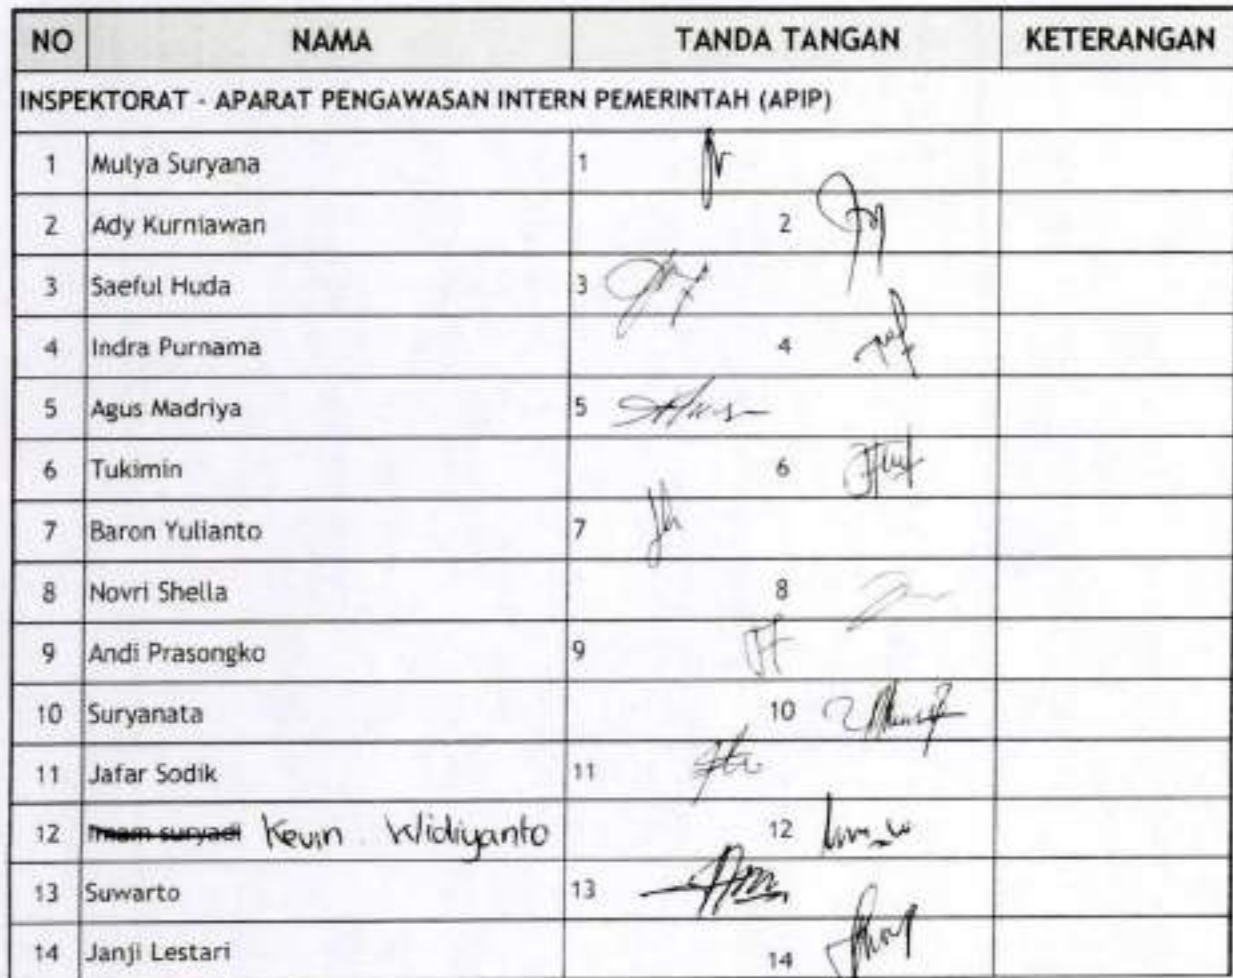 NO NAMA TANDA TANGAN KETERANGAN
INSPEKTORAT - APARAT PENGAWASAN INTERN PEMERINTAH (APIP)
1 Mulya Suryana 1
2 Ady Kurniawan 2
3 Saeful Huda 3
4 Indra Purnama 4
5 Agus Madriya 5
6 Tukimin 6
7 Baron Yulianto 7
8 Novri Shella 8
9 Andi Prasongko 9
10 Suryanata 10
11 Jafar Sodik 11
12 Imam suryadi Kevin . Widiyanto 12
13 Suwarto 13
14 Janji Lestari 14